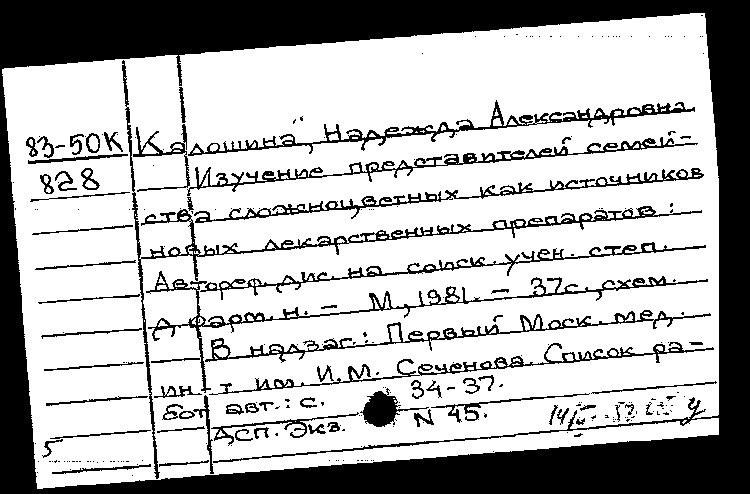 83-50К Калошина, Надежда Александровна.
828 Изучение представителей семей-
ства сложноцветных как источников
новых лекарственных препаратов:
Автореф. дис. на соиск. учен. степ.
д. фарм. н. - М., 1981. - 37с., схем.
В надзаг.: Первый Моск. мед.
ин-т им. И.М. Сеченова. Список ра-
бот авт.: с. 34-37.
ДСП. Экз. N 45.
5